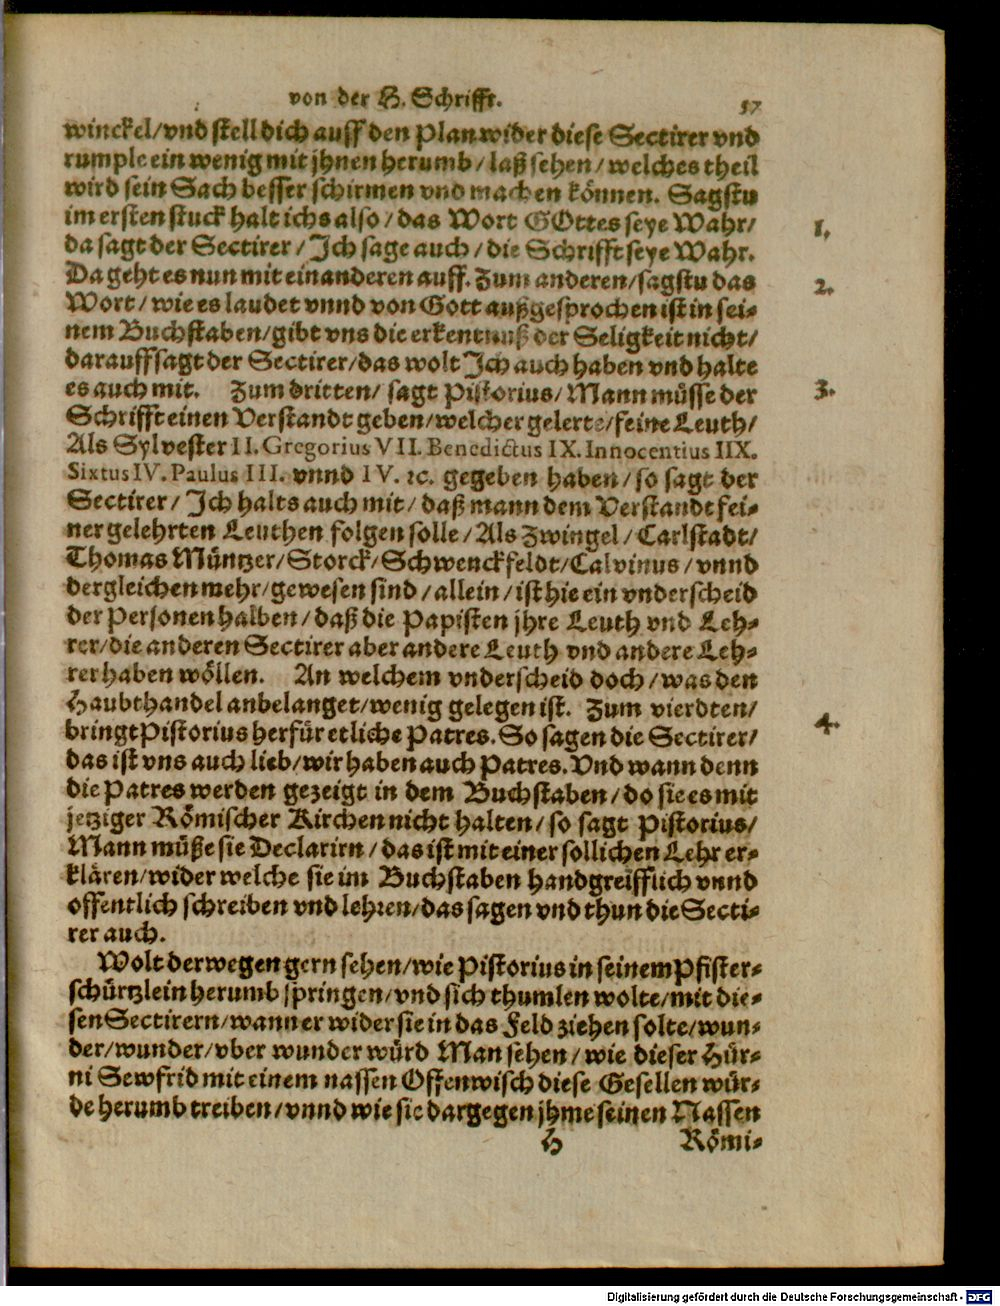 von der H. Schrifft. 57
winckel/vnd stell dich auff den Plan wider diese Sectirer vnd
rumple ein wenig mit jhnen herumb/laß sehen/welches theil
wird sein Sach besser schirmen vnd machen können. Sagstu
im ersten stuck halt ichs also/das Wort GOttes seye Wahr/ 1.
da sagt der Sectirer/Jch sage auch/die Schrifft seye Wahr.
Da geht es nun mit einanderen auff. Zum anderen/sagstu das 2.
Wort/wie es laudet vnnd von Gott außgesprochen ist in sei-
nem Buchstaben/gibt vns die erkentnuß der Seligkeit nicht/
darauff sagt der Sectirer/das wolt Jch auch haben vnd halte
es auch mit. Zum dritten/sagt Pistorius/Mann müsse der 3.
Schrifft einen Verstandt geben/welcher gelerte/feine Leuth/
Als Sylvester II. Gregorius VII. Benedictus IX. Innocentius IIX.
Sixtus IV. Paulus III. vnnd IV. ꝛc. gegeben haben/so sagt der
Sectirer/Jch halts auch mit/daß mann dem Verstandt fei-
ner gelehrten Leuthen folgen solle/Als Zwingel/Carlstadt/
Thomas Müntzer/Storck/Schwenckfeldt/Calvinus/vnnd
dergleichen mehr/gewesen sind/allein/ist hie ein vnderscheid
der Personen halben/daß die Papisten jhre Leuth vnd Leh-
rer/die anderen Sectirer aber andere Leuth vnd andere Leh-
rer haben wöllen. An welchem vnderscheid doch/was den
Haubthandel anbelanget/wenig gelegen ist. Zum vierdten/ 4.
bringt Pistorius herfür etliche Patres. So sagen die Sectirer/
das ist vns auch lieb/wir haben auch Patres. Vnd wann denn
die Patres werden gezeigt in dem Buchstaben/do sie es mit
jetziger Römischer Kirchen nicht halten/so sagt Pistorius/
Mann müße sie Declarirn/das ist mit einer sollichen Lehr er-
klären/wider welche sie im Buchstaben handgreifflich vnnd
offentlich schreiben vnd lehren/das sagen vnd thun die Secti-
rer auch.
Wolt derwegen gern sehen/wie Pistorius in seinem Pfister-
schürtzlein herumb springen/vnd sich thumlen wolte/mit die-
sen Sectirern/wann er wider sie in das Feld ziehen solte/wun-
der/wunder/vber wunder würd Man sehen/wie dieser Hür-
ni Sewfrid mit einem nassen Offenwisch diese Gesellen wür-
de herumb treiben/vnnd wie sie dargegen jhme seinen Nassen
H Römi-
Digitalisierung gefördert durch die Deutsche Forschungsgemeinschaft - DFG